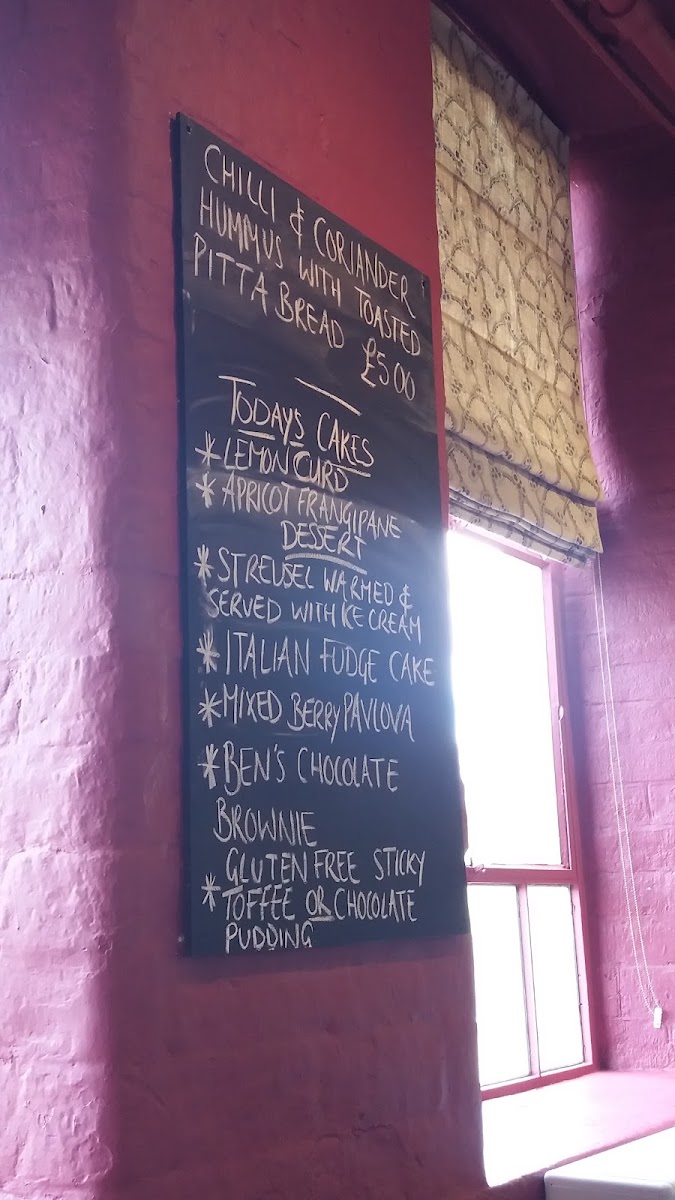 CHILLI & CORIANDER
HUMMUS WITH TOASTED
PITTA BREAD £5.00
TODAY'S CAKES
* LEMON CURD
* APRICOT FRANGIPANE
DESSERT
* STREUSEL WARMED &
SERVED WITH ICE CREAM
* ITALIAN FUDGE CAKE
* MIXED BERRY PAVLOVA
* BEN'S CHOCOLATE
BROWNIE
GLUTEN FREE STICKY
* TOFFEE OR CHOCOLATE
PUDDING